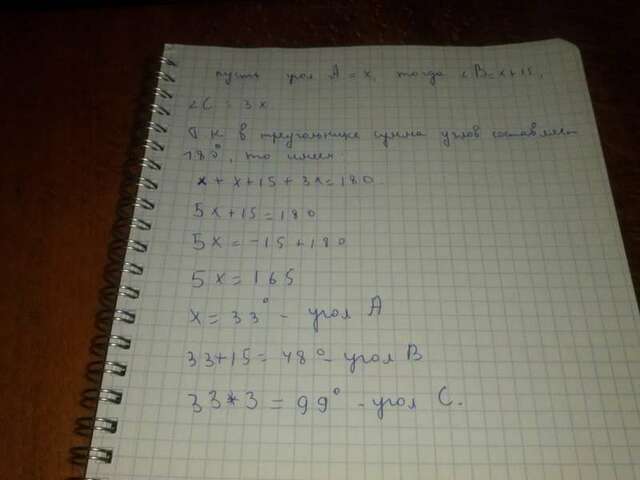 пусть угол A = x, тогда ∠B = x+15,
∠C = 3x
Т к в треугольнике сумма углов составляет
180°, то имеем
x + x + 15 + 3x = 180
5x + 15 = 180
5x = -15 + 180
5x = 165
x = 33° - угол A
33+15 = 48° - угол B
33*3 = 99° - угол C.